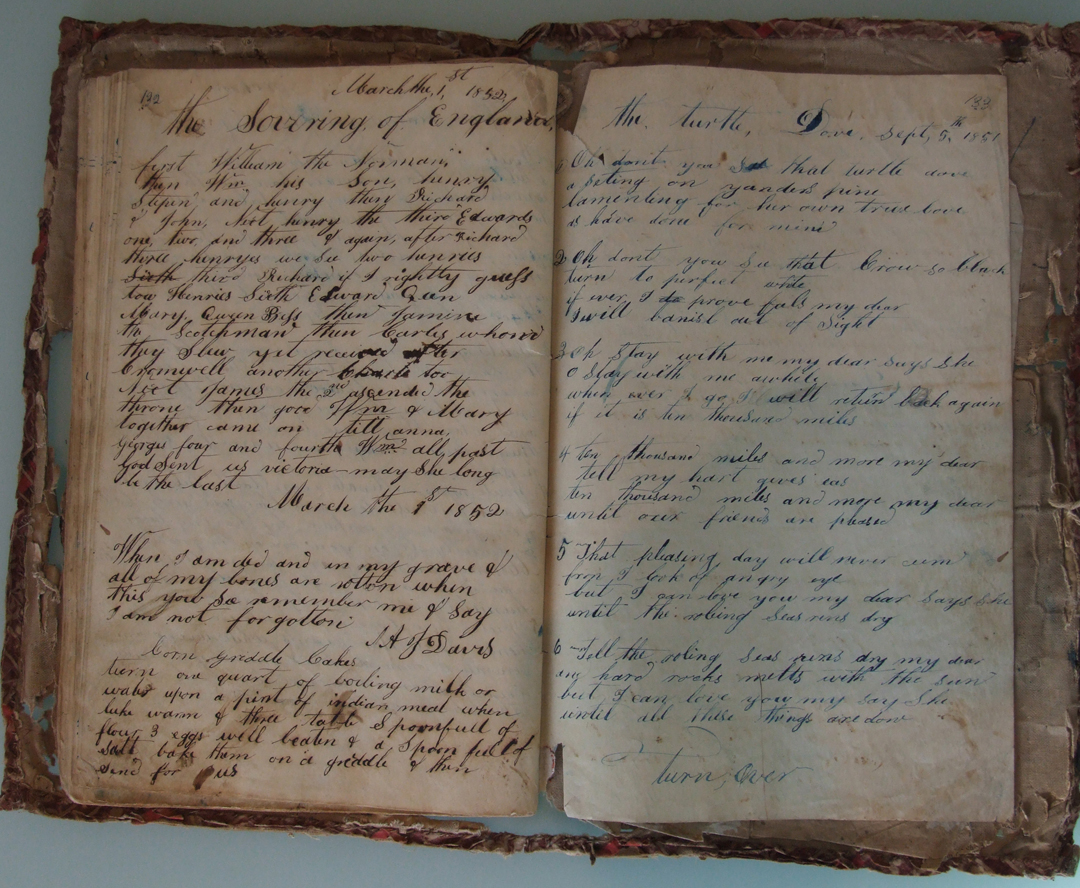 132
March the, 1st 1852,
the Sovering, of England,
first William the Norman,
then Wm his Son, henry,
Stepen and henry then Richard
& John, Next henry the third Edwards
one, two and three & again, after Richard
three henryes we See two henries
Sixth third Richard if I rightly guess
tow Henries Sixth Edward Quen
Mary, Queen Bess then Jamine
the Scotchman then Carles whom
they Slew yet received after
Cromwell another Charls too
Next James the 2nd ascended the
throne then good Wm & Mary
together came on till anna,
georges four and fourth Wm all past
God Sent us victoria may She long
be the last
March the 1st 1852
When I am ded and in my grave &
all of my bones are rotton when
this you Se remember me & Say
I am not forgotton
Davis
Corn griddle Cakes
turn one quart of boiling milk or
water upon a pint of indian meal when
luke warm & three table Spoonfull of
flour, 3 eggs well beaten & a Spoon full of
Salt bake them on a griddle & then
Send for us
133
the, turtle, Dove, Sept, 5th 1851
Oh dont you See that turtle dove
a Seting on yanders pine
lamenting for her own true love
as have done for mine
2 Oh dont you See that Crow So black
turn to purfect white
if ever I do prove fals my dear
I will banish out of Sight
3 Oh Stay with me my dear Says She
O Stay with me awhile
when ever I go I will return back again
if it is ten thousand miles
4 ten thousand miles and more my dear
tell my hart gives eas
ten thousand miles and more my dear
until our friends are pleased
5 That pleasing day will never cum
from I look of angry eye
but I can love you my dear Says She
until the roling Seas runs dry
6 Tell the roling Seas runs dry my dear
hard rocks melts with the Sun
but I can love you my Say She
untel all these things are don
turn, Over